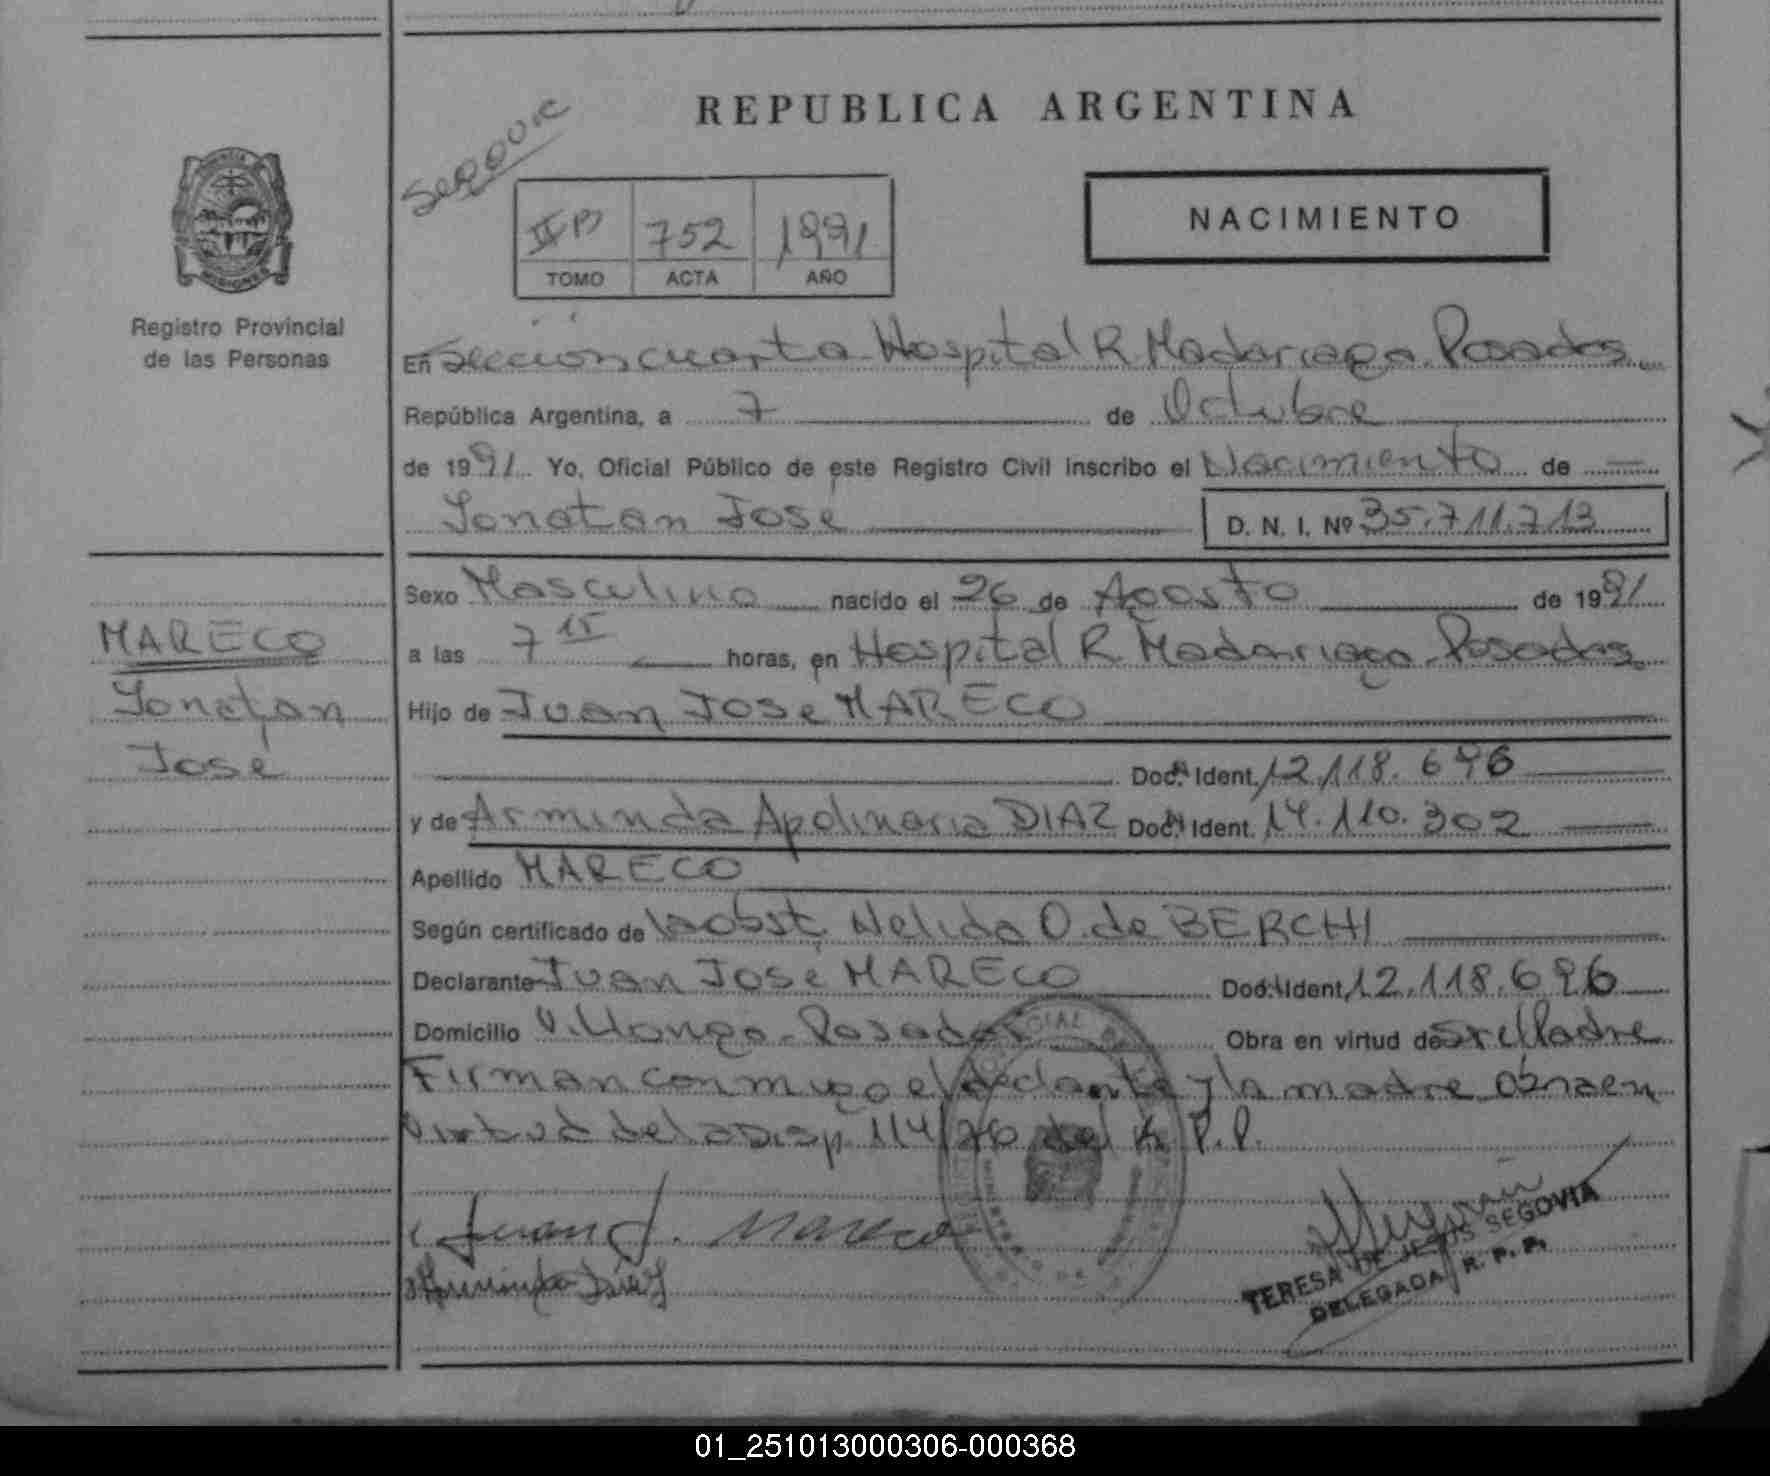 REPUBLICA ARGENTINA
NACIMIENTO
II B 752 1991
TOMO ACTA AÑO
MISIONES
Registro Provincial
de las Personas
En Sección cuarta Hospital R. Madariaga Posadas
República Argentina, a 7 de Octubre
de 1991 Yo, Oficial Público de este Registro Civil inscribo el Nacimiento de —
Jonatan José D. N. I. Nº 35.711.713
Sexo Masculino nacido el 26 de Agosto de 1991
a las 7 15 horas, en Hospital R. Madariaga Posadas
Hijo de Juan José MARECO
Doc. Ident. 12.118.696
y de Arminda Apolinaria DIAZ Doc. Ident. 14.110.302
Apellido MARECO
Según certificado de la obst. Nelida O. de BERCHI
Declarante Juan José MARECO Doc. Ident. 12.118.696
Domicilio V. Longa - Posadas Obra en virtud de
Firman conmigo el y la madre
virtud de la Disp 114/76 del R.P.P.
MARECO
Jonatan
José
Juan J. Mareco
Arminda Diaz
TERESA DE JESUS SEGOVIA
DELEGADA R. P. P.
01_251013000306-000368